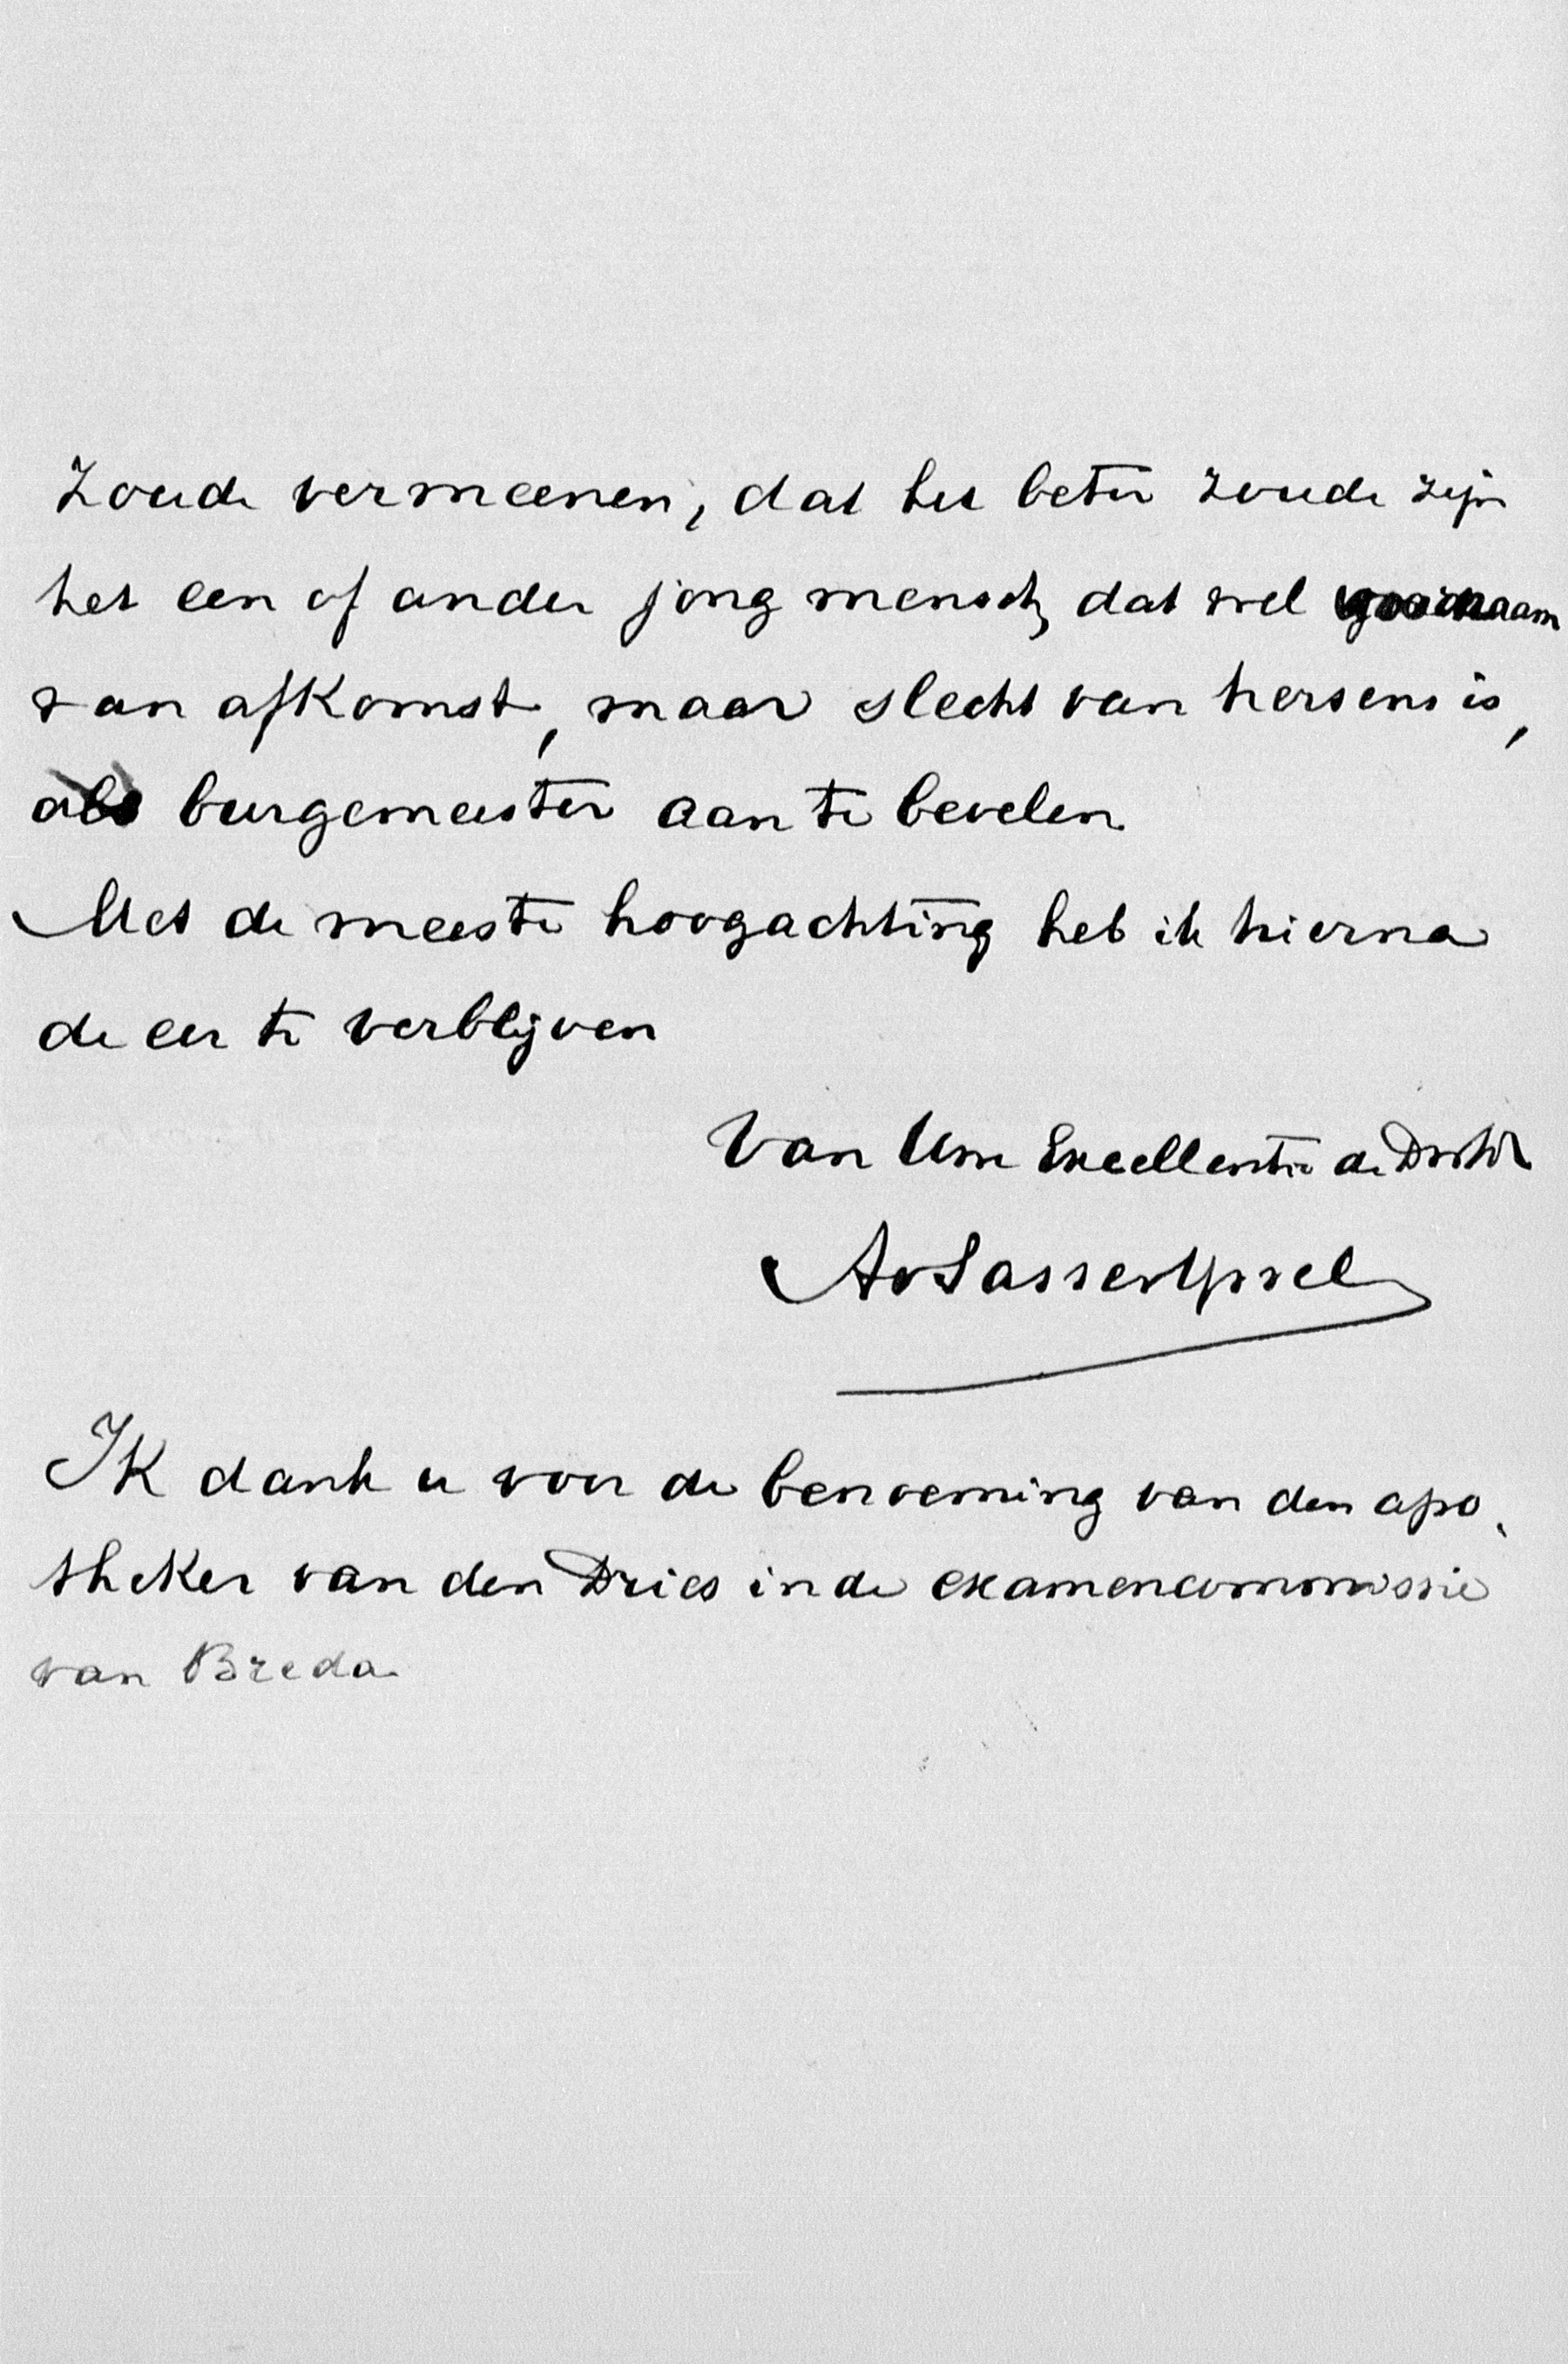 zoude vermeenen, dat het beter zoude zijn
het een of ander jong mensch, dat wel voornaam
van afkomst, maar slecht van hersens is,
als burgemeester aan te bevelen.
Met de meeste hoogachting heb ik hierna
de eer te verblijven
Van Uwe Excellentie de
AvSassevYssel
Ik dank u voor de benoeming van den apo-
theker van den Dries in de examencommissie
van Breda.